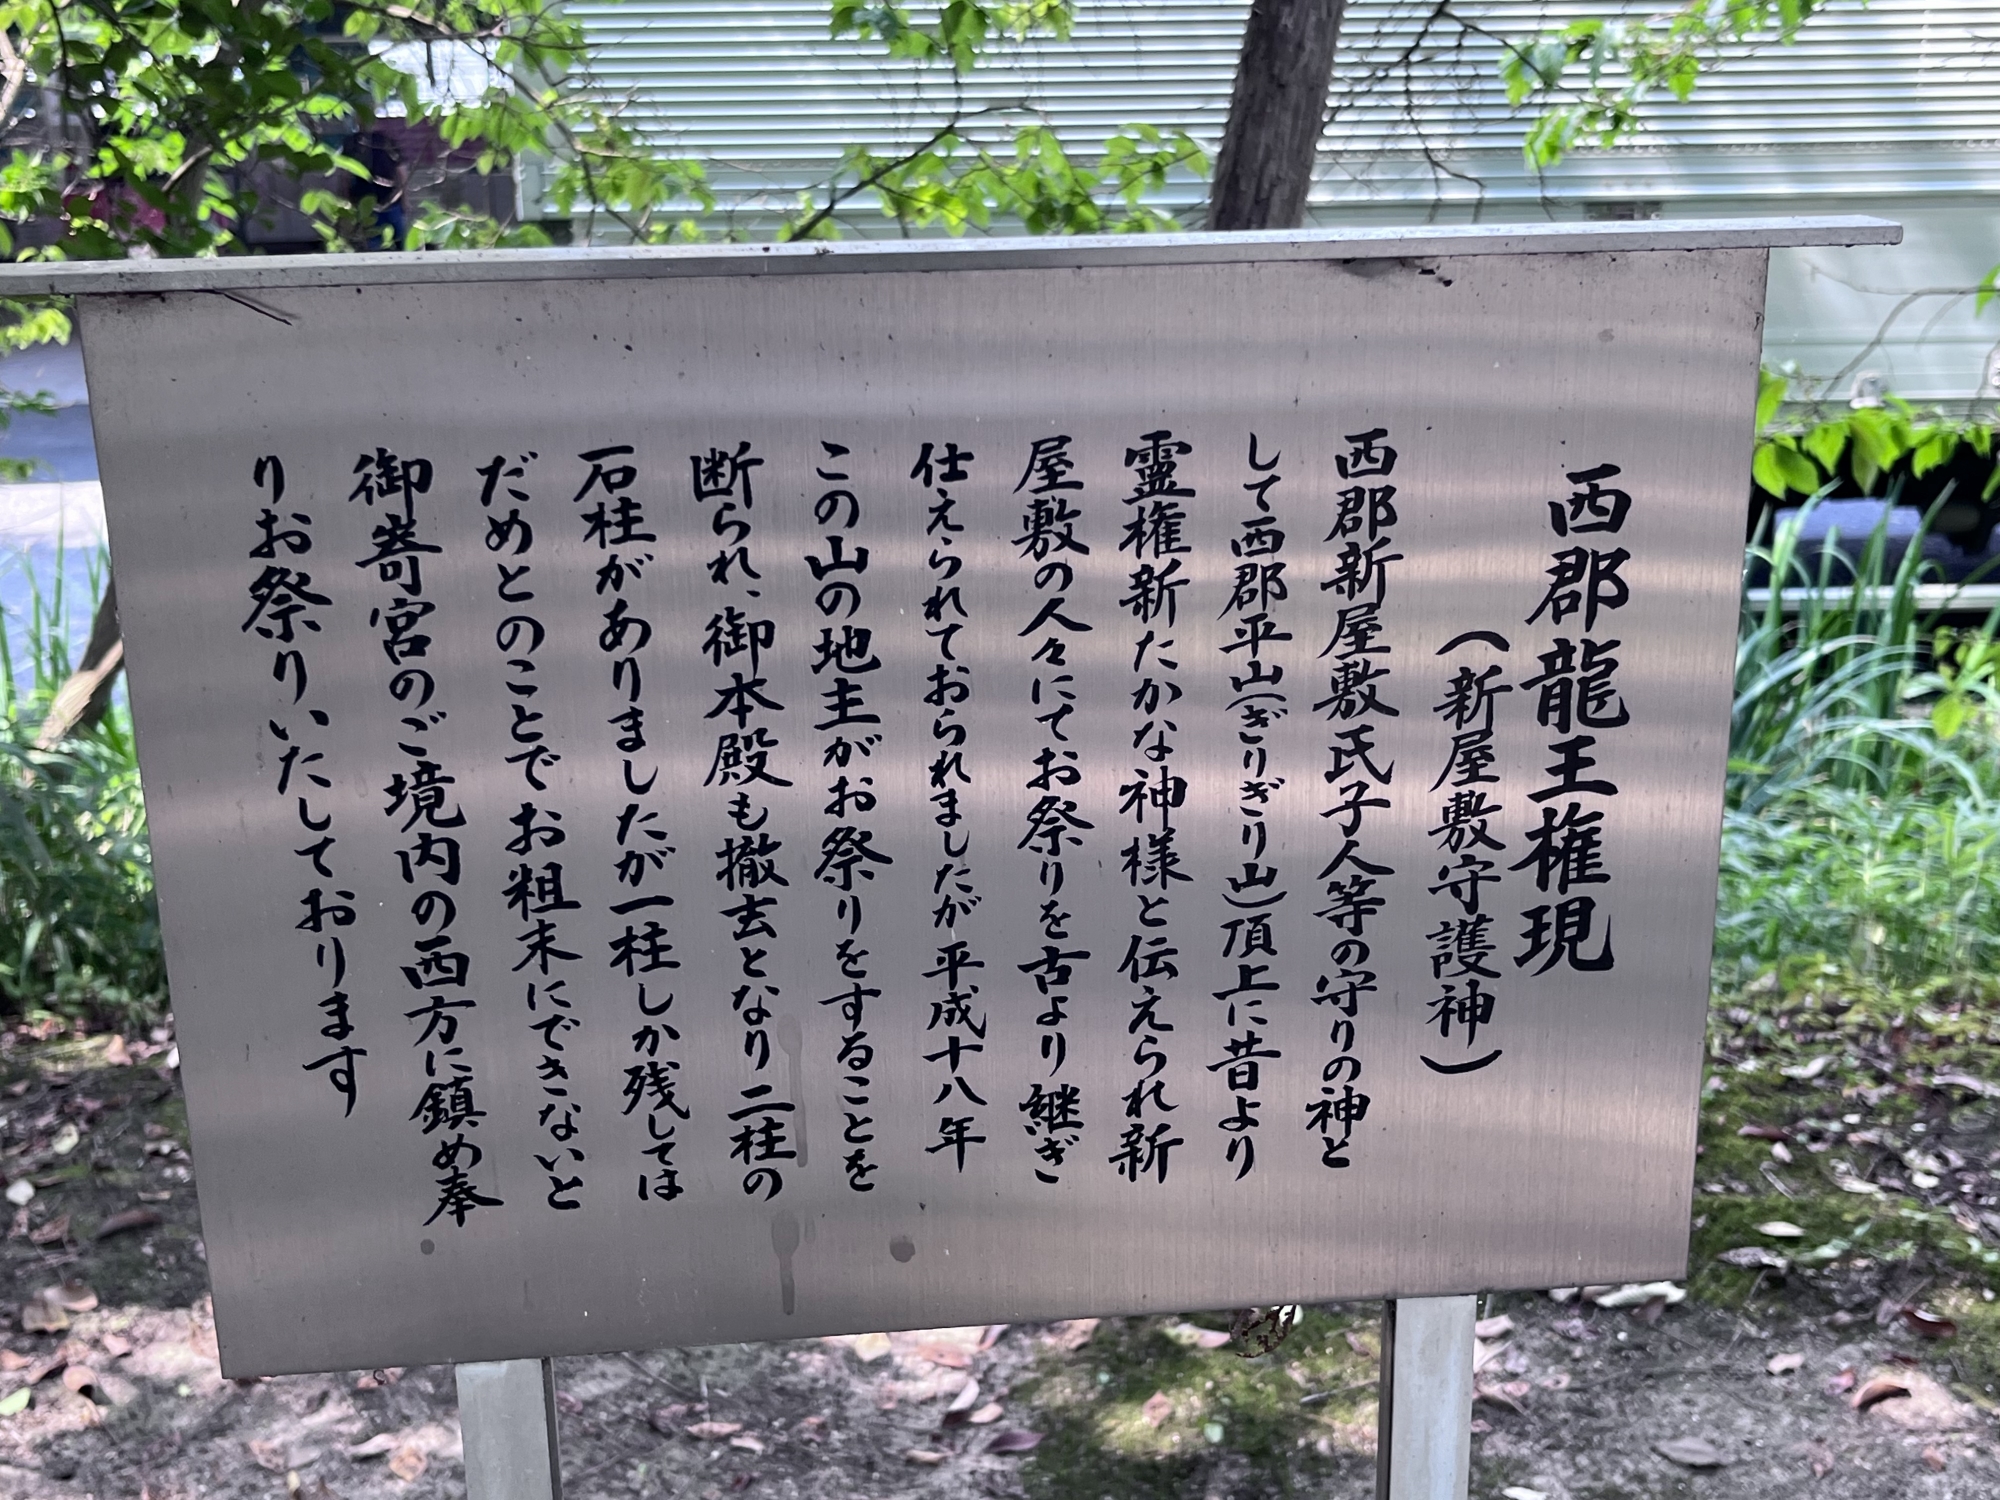 西郡龍王権現
（新屋敷守護神）
西郡新屋敷氏子人等の守りの神と
して西郡平山（ぎりぎり山）頂上に昔より
霊権新たかな神様と伝えられ新
屋敷の人々にてお祭りを古より継ぎ
仕えられておられましたが平成十八年
この山の地主がお祭りをすることを
断られ、御本殿も撤去となり二柱の
石柱がありましたが一柱しか残しては
だめとのことでお粗末にできないと
御嵜宮のご境内の西方に鎮め奉
りお祭りいたしております